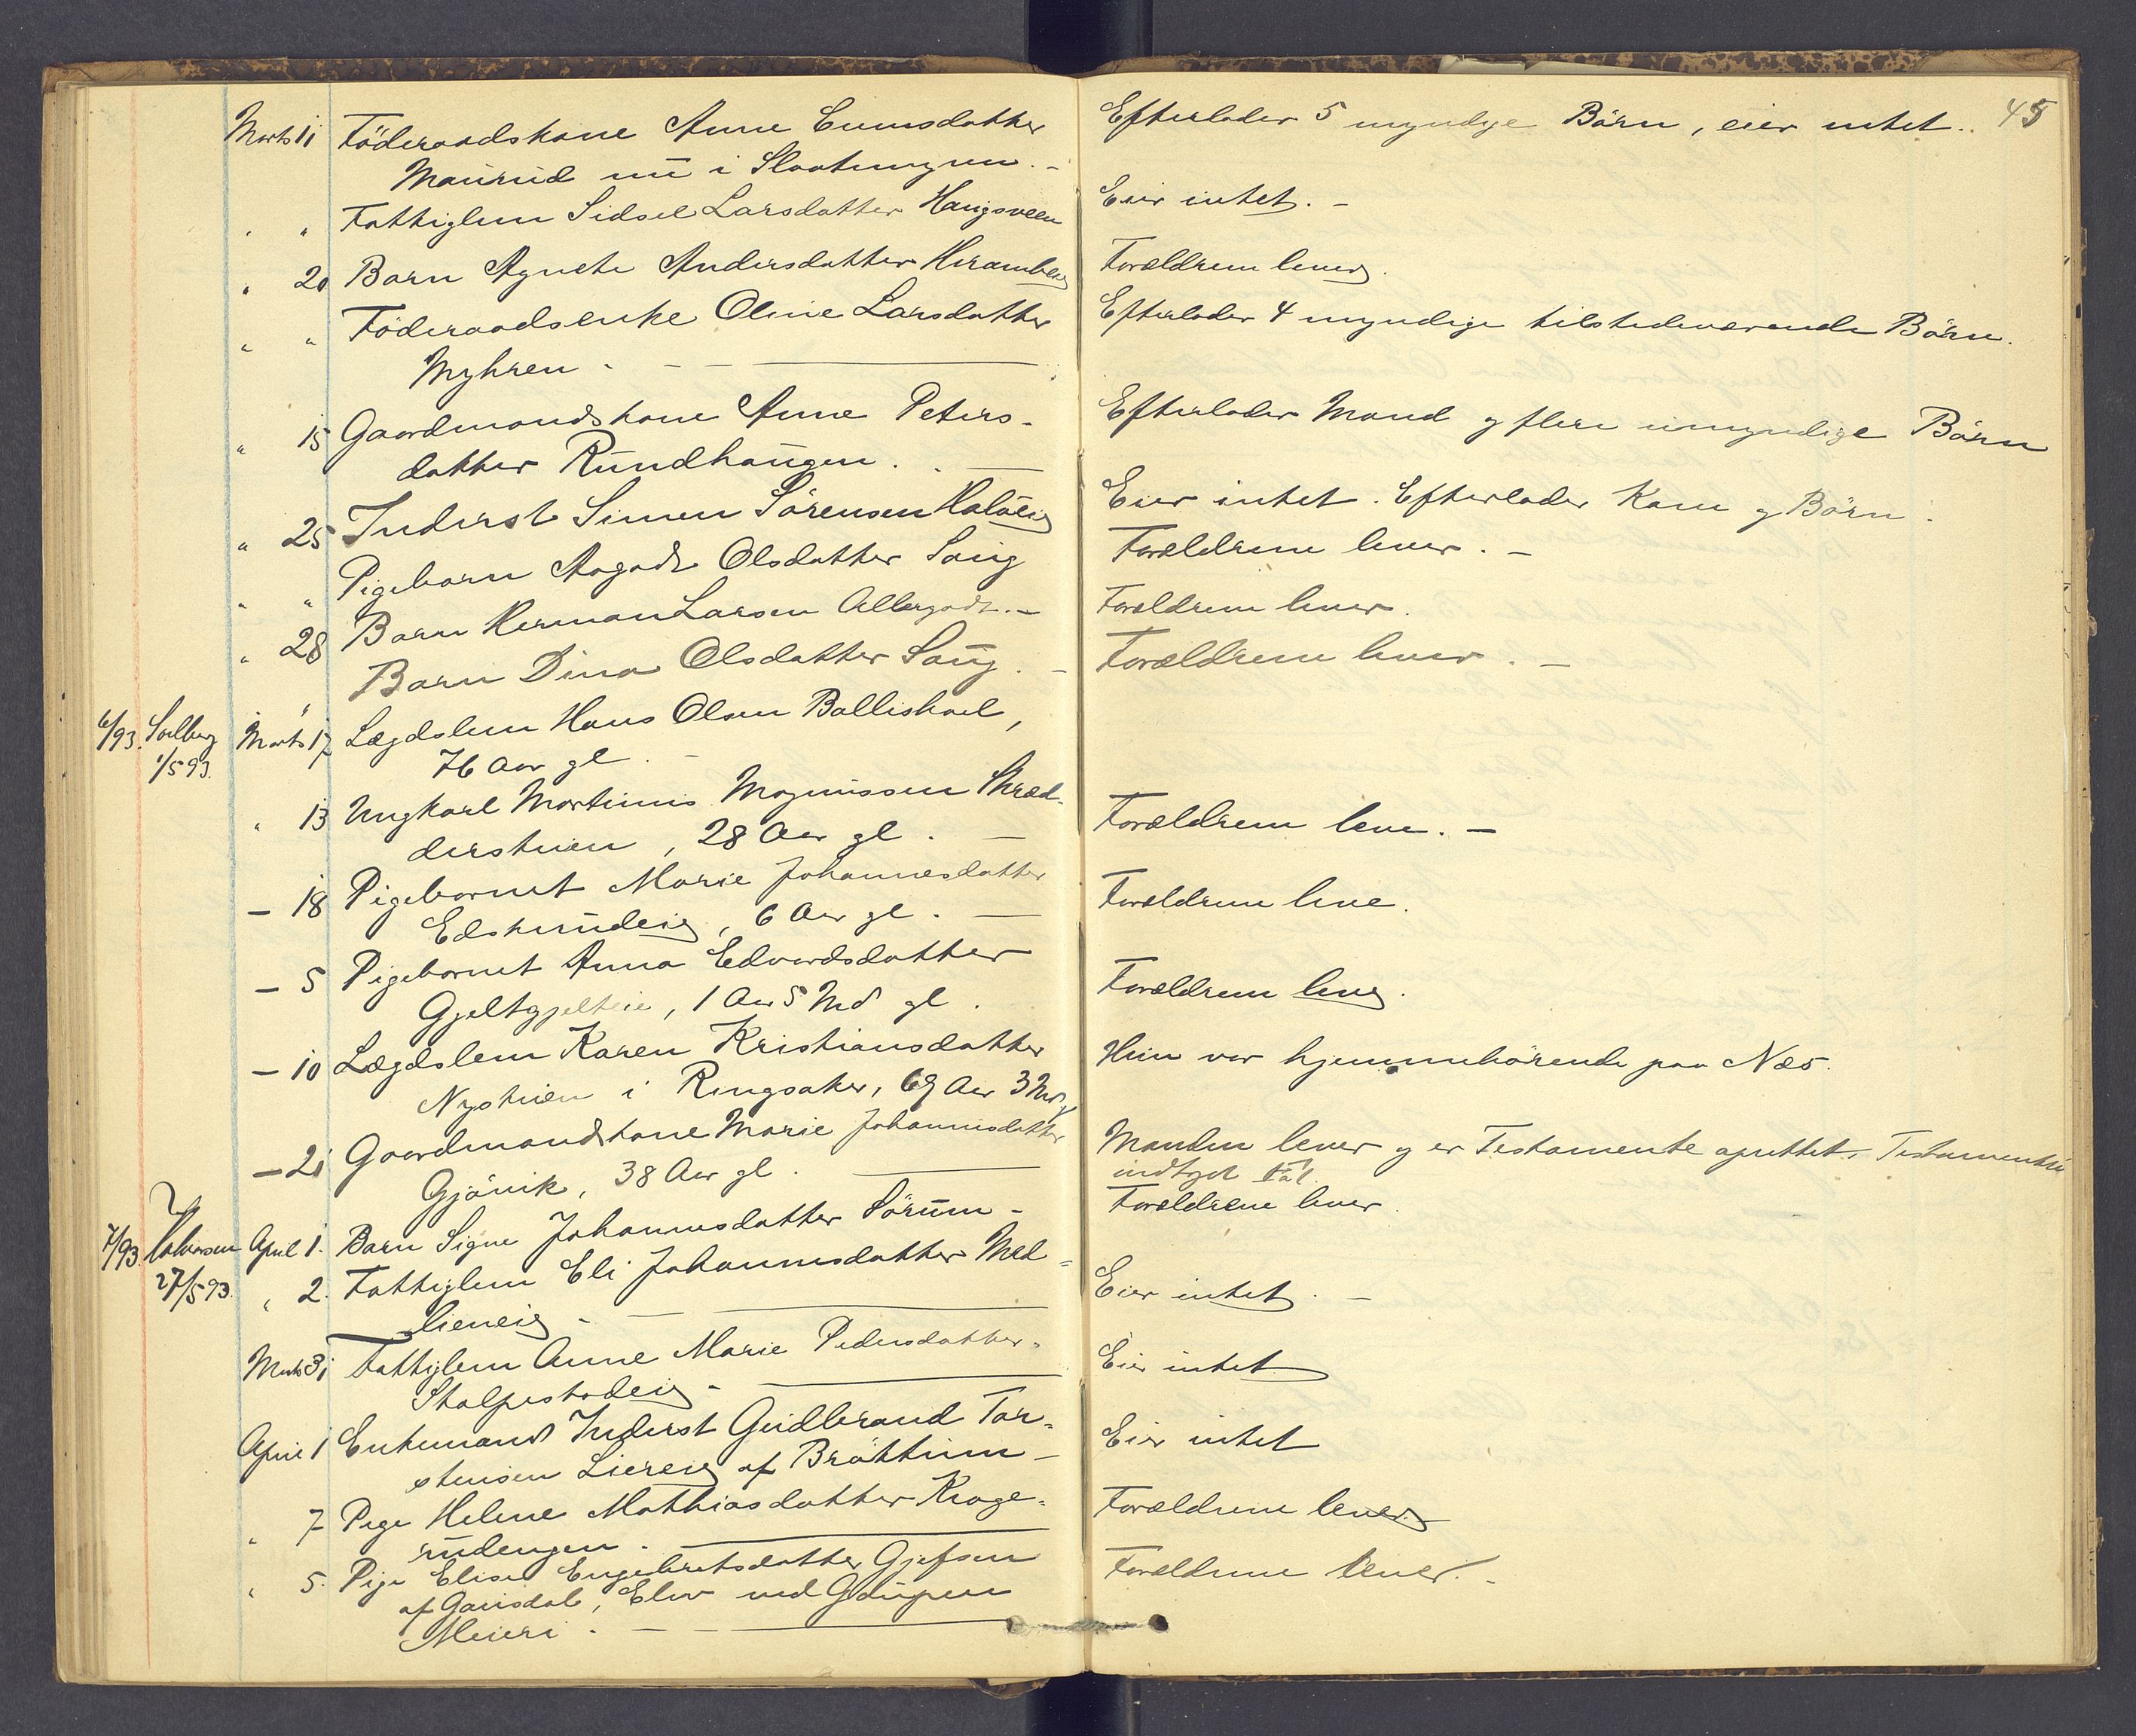 45
Marts 11 Föderaadskone Anne Evensdatter Efterlader 5 myndige Börn, eier intet.
Maurud nu i Slaatmyren. -
" " Fattiglem Sidsel Larsdatter Haugsveen Eier intet. -
" 20 Barn Agnete Andersdatter Forældrene lever.
" " Föderaadsenke Oline Larsdatter Efterlader 4 myndige tilstedeværende Börn.
Myhren. - - -
" 15 Gaardmandskone Anne Peters- Efterlader Mand og flere umyndige Börn
datter Rundhaugen. -
" 25 Inderst Simen Sörensen Eier intet. Efterlader Kone og Börn.
" " Pigebarn Aagodt Olsdatter Saug Forældrene lever. -
" 28 Barn Herman Larsen Allergodt. - Forældrene lever.
" Barn Dina Olsdatter Saug. - Forældrene lever. -
6/93. Solberg Marts 17 Lægdslem Hans Olsen Ballishoel,
1/5 93. 76 Aar gl. -
" 13 Ungkarl Martinus Magnussen Skræd- Forældrene leve. -
derstuen, 28 Aar gl. -
- 18 Pigebarnet Marie Johannesdatter Forældrene leve.
Edsrudeie, 6 Aar gl. -
- 5 Pigebarnet Anna Edvardsdatter Forældrene leve.
Gjeltgjelteie, 1 Aar 5 Md gl.
- 10 Lægdslem Karen Kristiansdatter Hun var hjemmehörende paa Næs.
Nystuen i Ringsaker, 69 Aar 3 Md
- 21 Gaardmandskone Marie Johannesdatter Manden lever og er Testamente oprettet. Testamentet
Gjövik, 38 Aar gl. - indtaget
7/93. Halvorsen April 1. Barn Signe Johannesdatter Sörum - Forældrene lever.
27/5 93. " 2. Fattiglem Eli Johannesdatter Mæl= Eier intet. -
lieneie -
Marts 31 Fattiglem Anne Marie Pedersdatter Eier intet
Skalpestadeie -
April 1 Enkemand Inderst Gudbrand Tor= Eier intet
stensen Liereie af Bröttum -
" 7 Pige Helene Mathiasdatter Krage= Forældrene lever.
rudengen. -
" 5. Pige Elise Engebretsdatter Gjefsen Forældrene lever. -
af Gausdal, Elev ved
Meieri. - - -